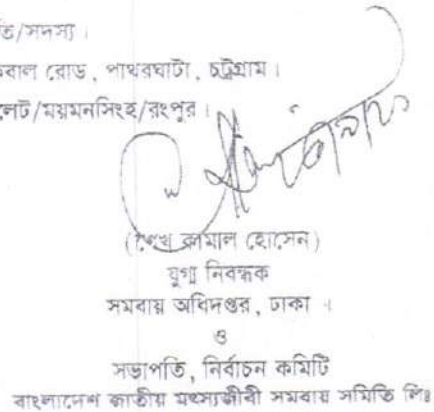 তি/সদস্য।
কবাল রোড, পাথরঘাটা, চট্টগ্রাম।
লেট/ময়মনসিংহ/রংপুর।
(শেখ কামাল হোসেন)
যুগ্ম নিবন্ধক
সমবায় অধিদপ্তর, ঢাকা ।
ও
সভাপতি, নির্বাচন কমিটি
বাংলাদেশ জাতীয় মৎস্যজীবী সমবায় সমিতি লিঃ